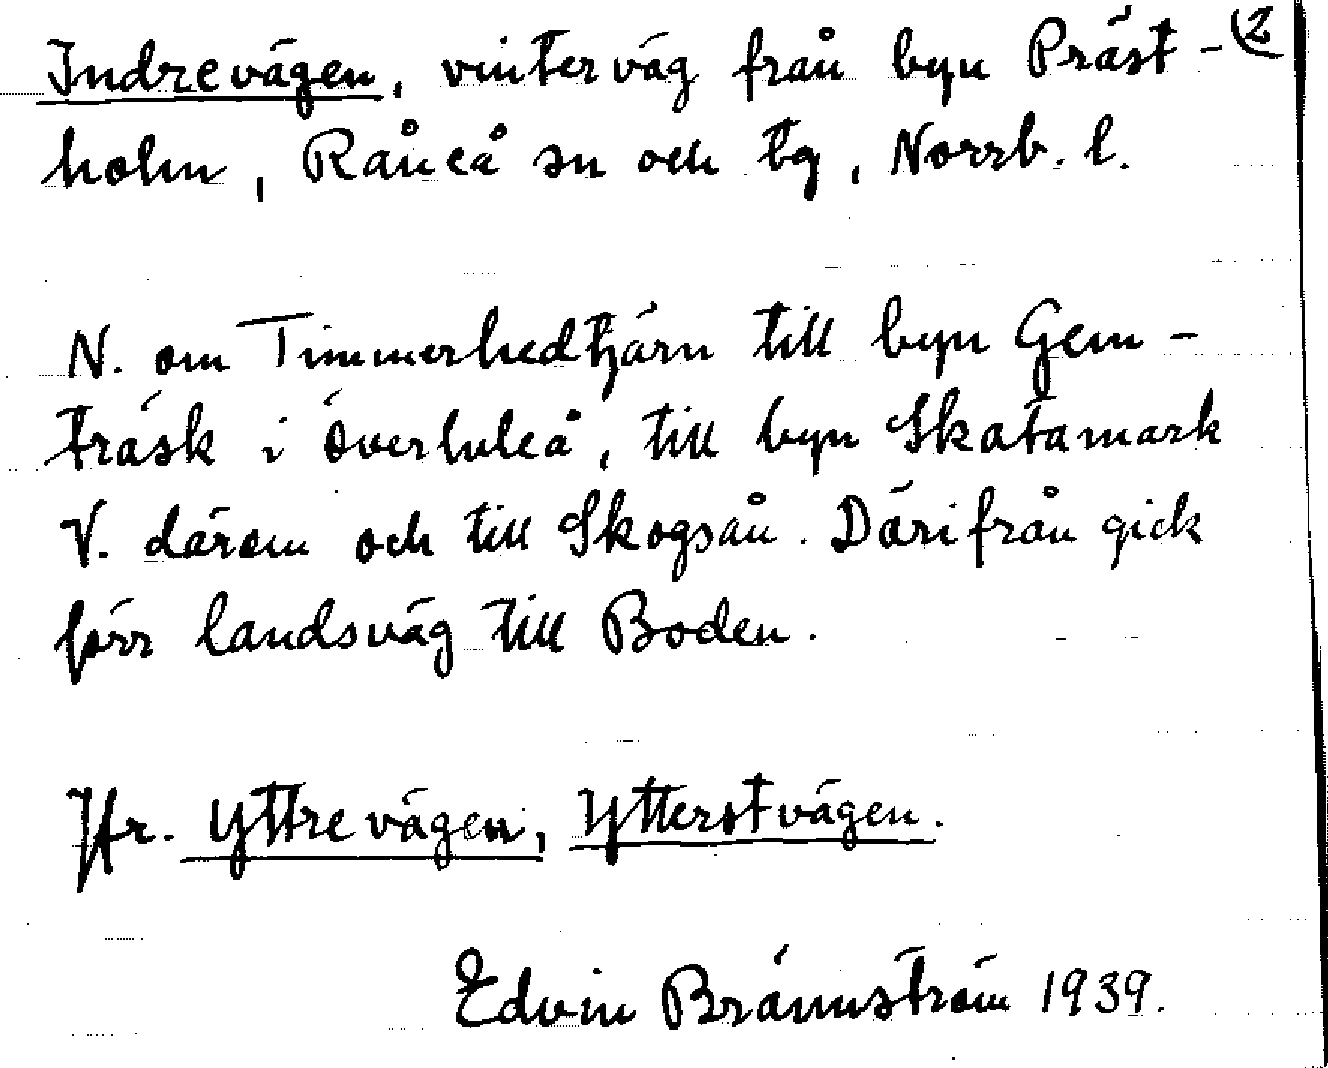 Indrevägen, vinterväg från byn Präst- (2
holm, Råneå sn och tg, Norrb. l.
N. om Timmerhedtjärn till byn Gem-
träsk i Överluleå, till byn Skatamark
V. därom och till Skogsån. Därifrån gick
förr landsväg till Boden.
Jfr. Yttrevägen, Ytterstvägen.
Edvin Brännström 1939.